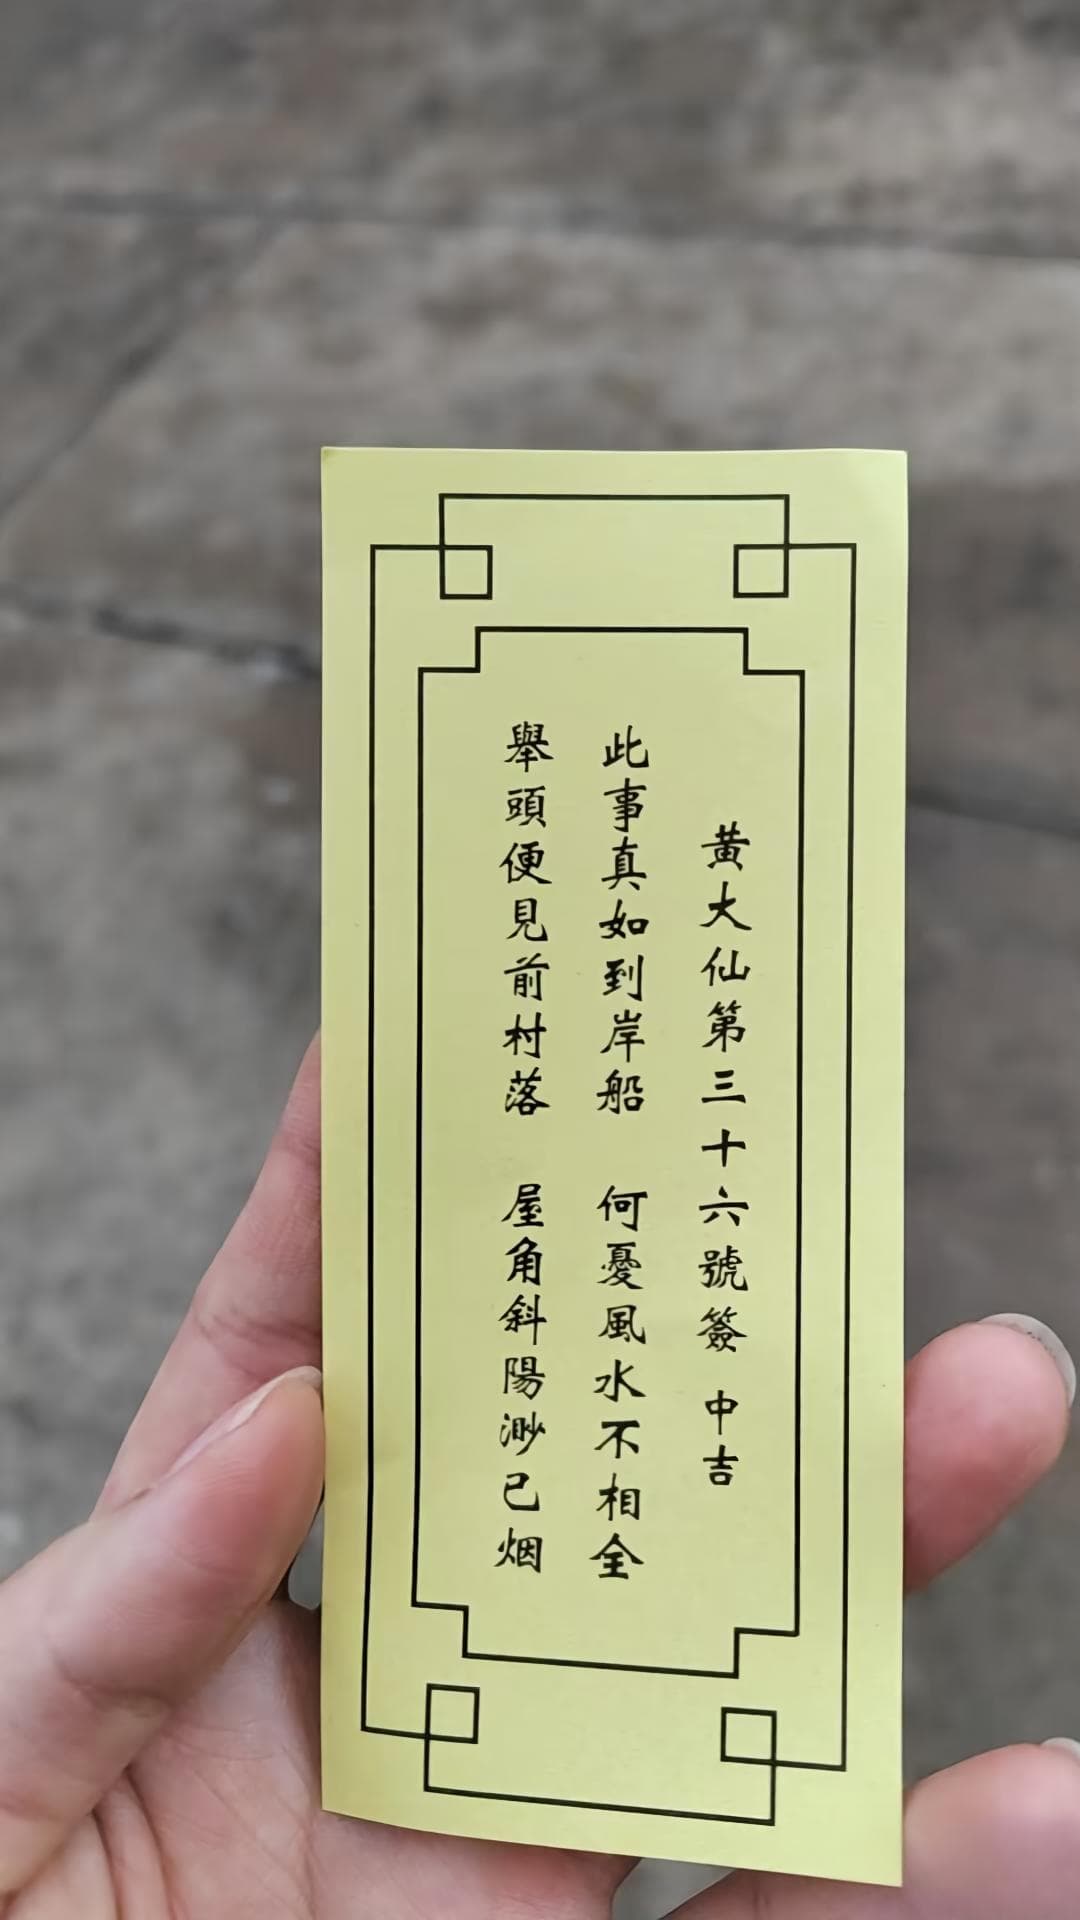 黃大仙第三十六號簽 中吉
此事真如到岸船 何憂風水不相全
舉頭便見前村落 屋角斜陽渺已烟